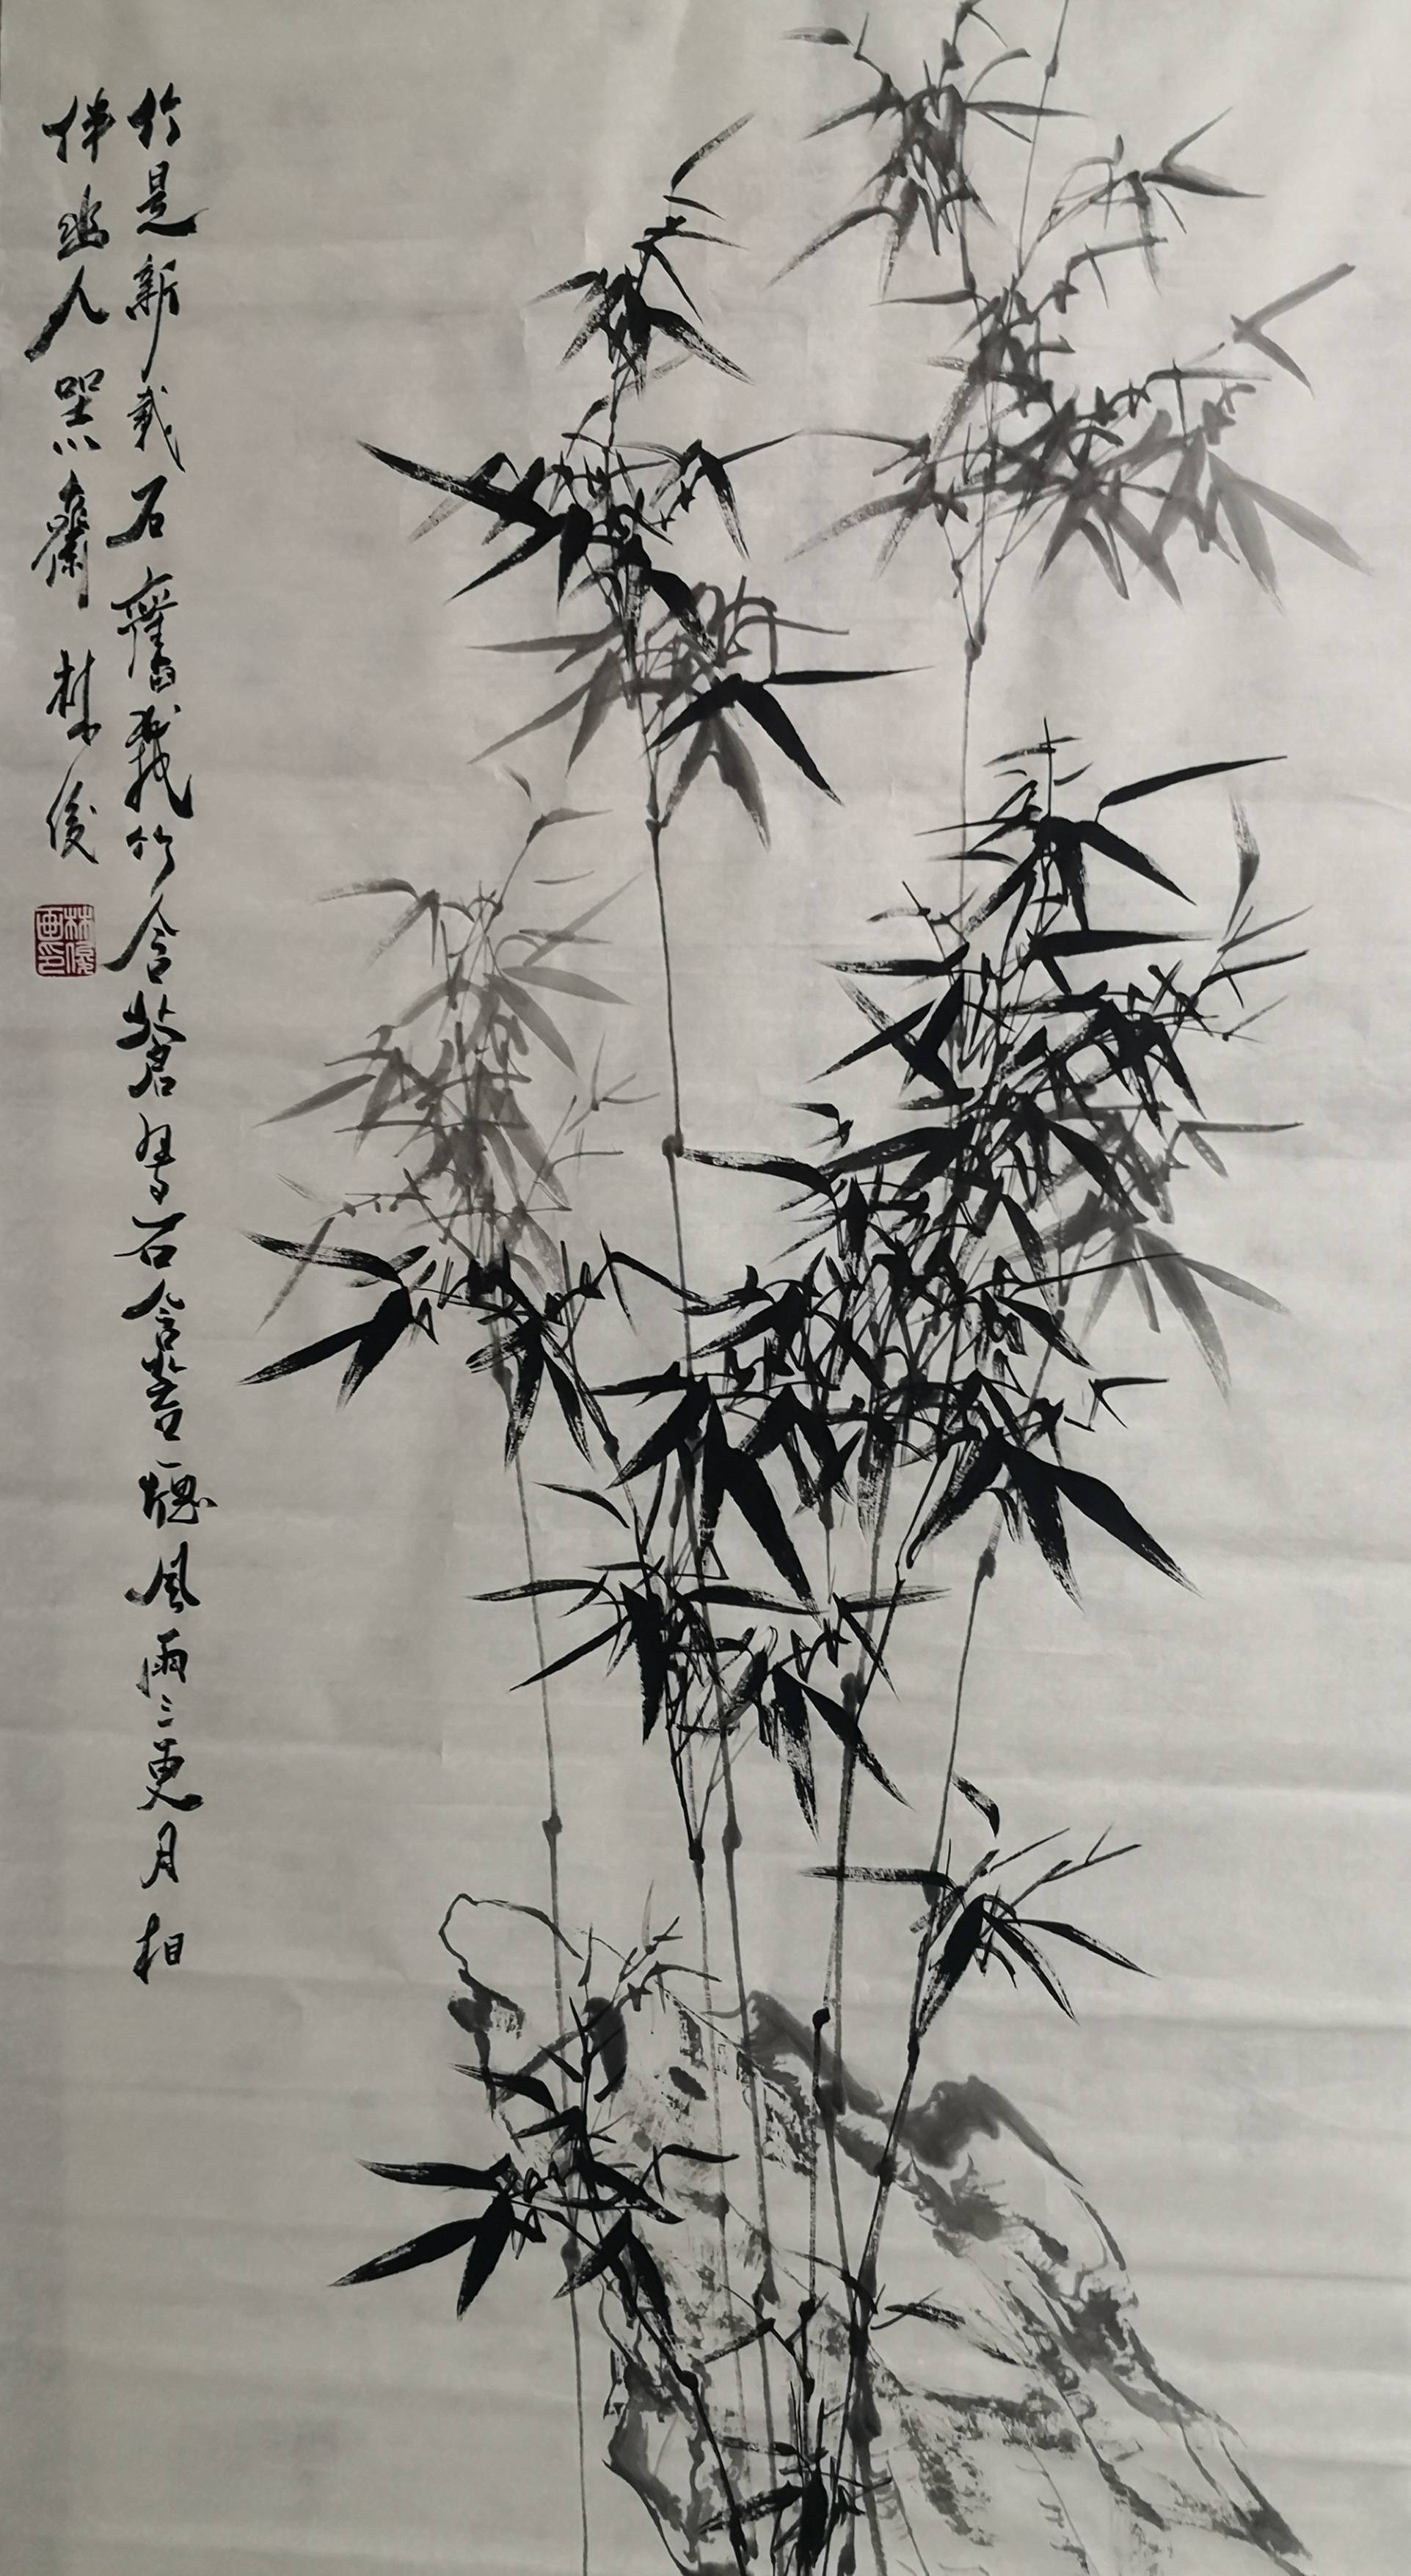 竹是新栽石舊栽竹含蒼翠石含苔一牕風雨三更月相
伴幽人坐小齋 林俊
林俊画印